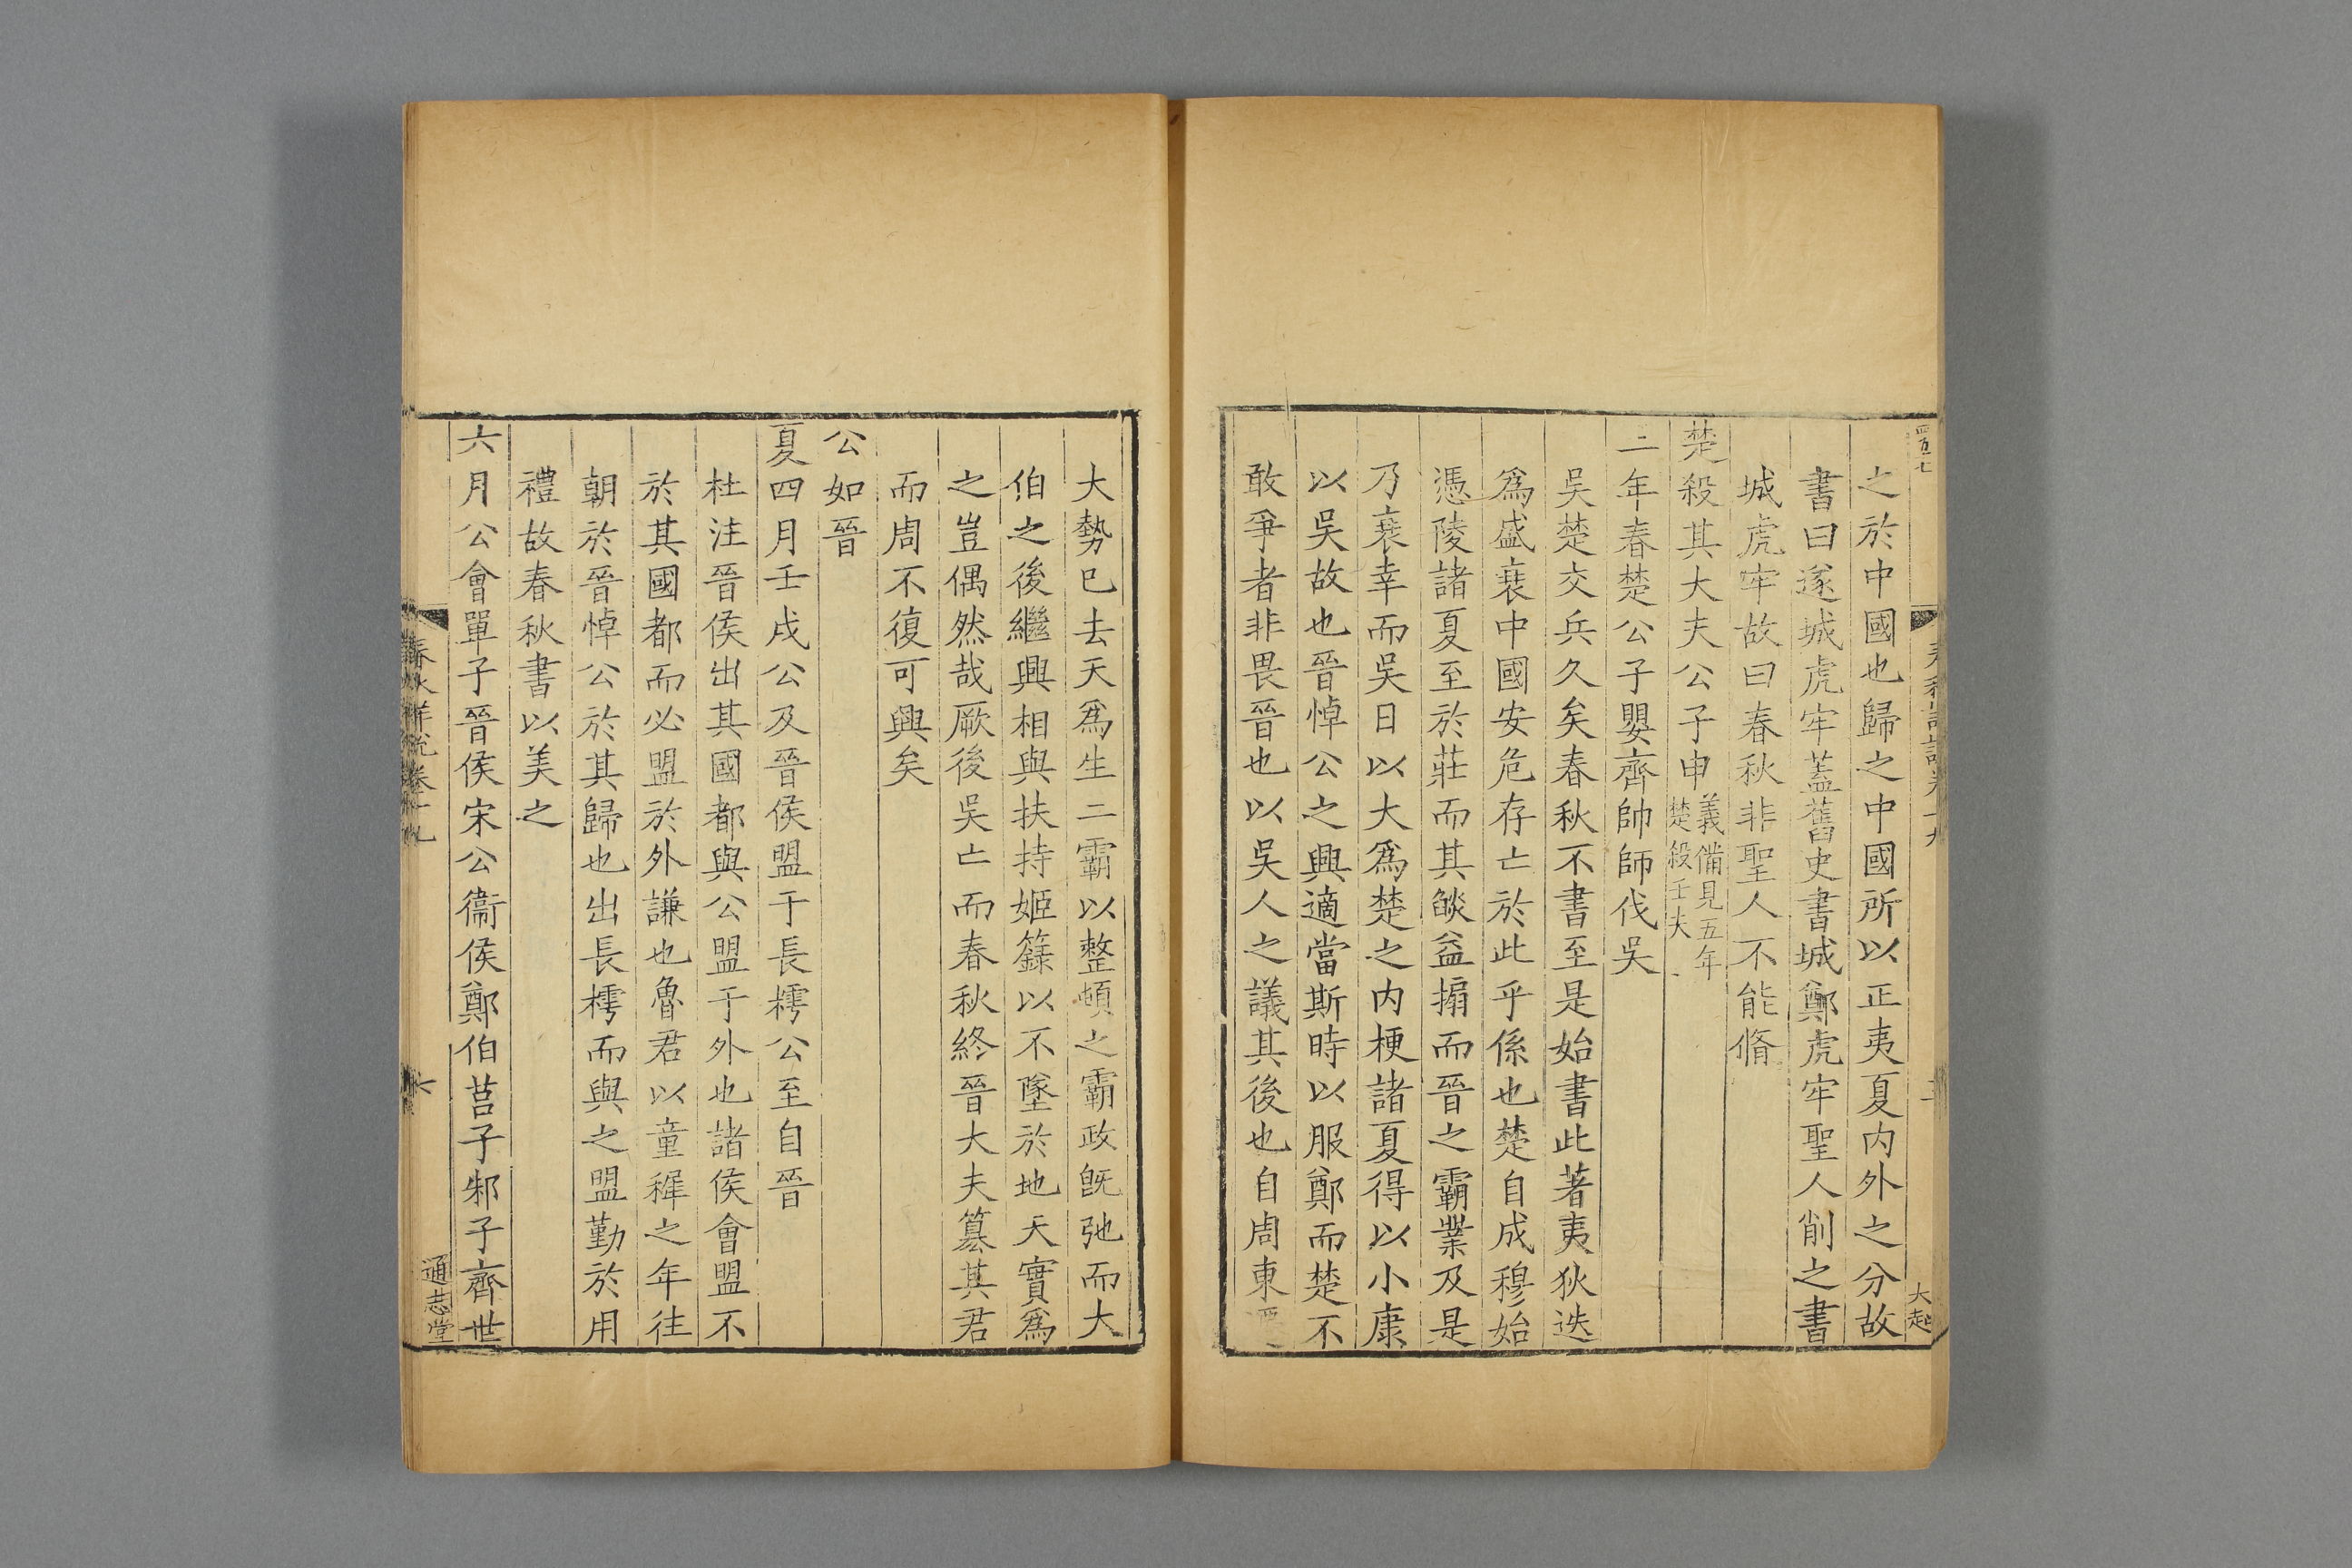 之於中國也歸之中國所以正夷夏内外之分故
書曰遂城虎牢蓋舊史書城鄭虎牢聖人削之書
城虎牢故曰春秋非聖人不能脩
楚殺其大夫公子申義備見五年
楚殺壬夫
三年春楚公子嬰齊帥師伐吳
吳楚交兵久矣春秋不書至是始書此著夷狄迭
爲盛衰中國安危存亡於此乎係也楚自成穆始
憑陵諸夏至於莊而其燄益搧而晉之霸業及是
乃衰幸而吳日以大爲楚之内梗諸夏得以小康
以吳故也晉悼公之興適當斯時以服鄭而楚不
敢爭者非畏晉也以吳人之議其後也自周東
大勢已去天爲生二霸以整頓之霸政既弛而大
伯之後繼興相與扶持姬籙以不墜於地天實爲
之豈偶然哉厥後吳亡而春秋終晉大夫簒其君
而周不復可興矣
公如晉
夏四月壬戌公及晉侯盟于長樗公至自晉
杜注晉侯出其國都與公盟于外也諸侯會盟不
於其國都而必盟於外謙也魯君以童穉之年往
朝於晉悼公於其歸也出長樗而與之盟勤於用
禮故春秋書以美之
六月公會單子晉侯宋公衞侯鄭伯莒子邾子齊世
春秋詳說卷十九
六
通志堂